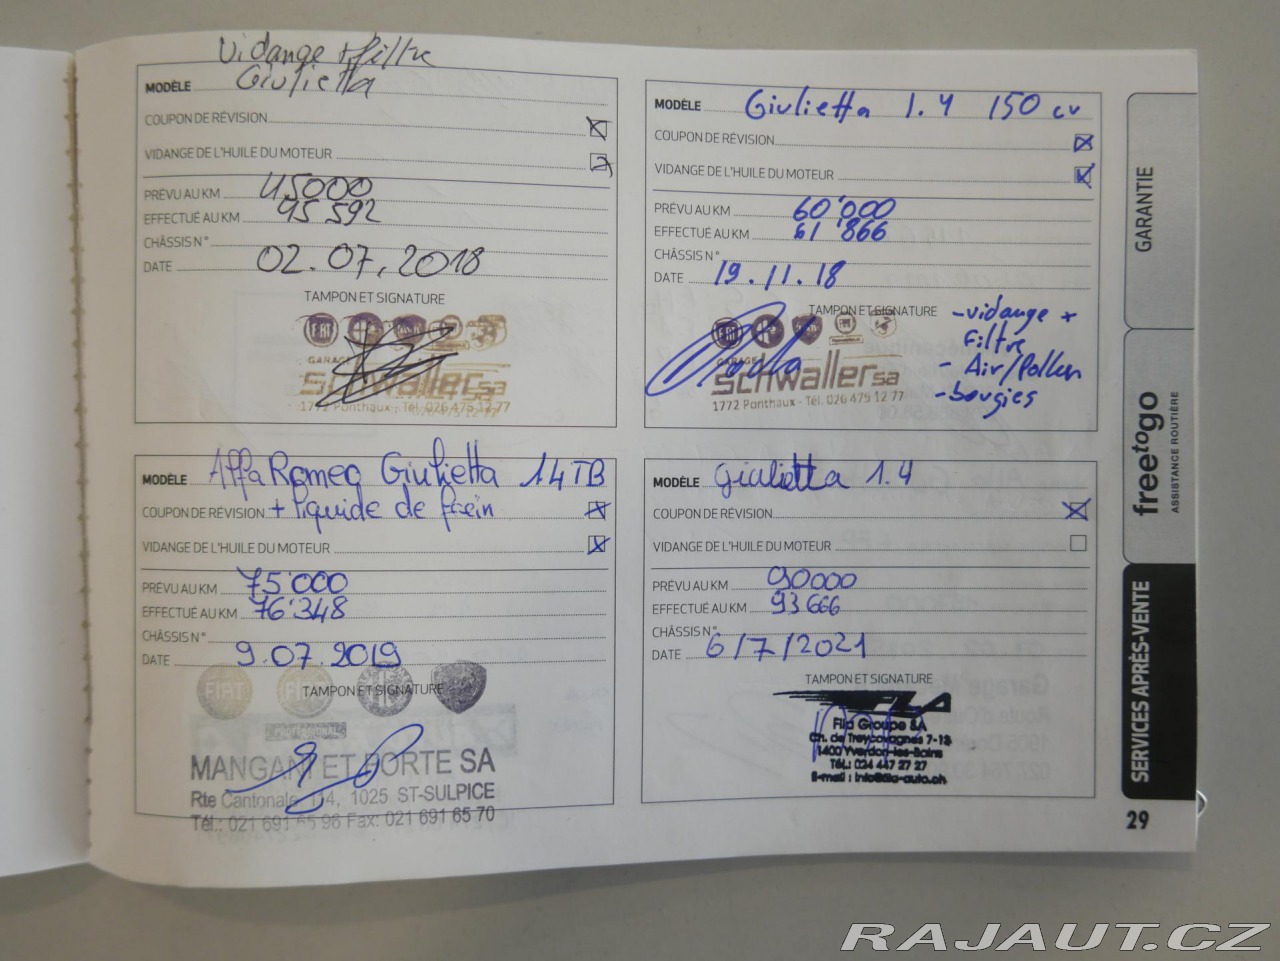 Vidange + filtre
MODÈLE Giulietta
COUPON DE RÉVISION
VIDANGE DE L'HUILE DU MOTEUR
PRÉVU AU KM 45000
EFFECTUÉ AU KM 45 592
CHÂSSIS N°
DATE 02.07.2018
TAMPON ET SIGNATURE
FIAT
GARAGE
schwaller sa
1772 Ponthaux - Tél. 026 475 12 77
MODÈLE Giulietta 1.4 150 cv
COUPON DE RÉVISION
VIDANGE DE L'HUILE DU MOTEUR
PRÉVU AU KM 60'000
EFFECTUÉ AU KM 61'866
CHÂSSIS N°
DATE 19.11.18
TAMPON ET SIGNATURE
- vidange +
Filtre
- Air/Pollen
- bougies
FIAT
GARAGE
schwaller sa
1772 Ponthaux - Tél. 026 475 12 77
MODÈLE Alfa Romeo Giulietta 1.4 TB
COUPON DE RÉVISION + liquide de frein
VIDANGE DE L'HUILE DU MOTEUR
PRÉVU AU KM 75'000
EFFECTUÉ AU KM 76'348
CHÂSSIS N°
DATE 9.07.2019
TAMPON ET SIGNATURE
FIAT
PROFESSIONAL
MANGANI ET PORTE SA
Rte Cantonale 1025 ST-SULPICE
Tél.: 021 691 55 96 Fax: 021 691 65 70
MODÈLE Giulietta 1.4
COUPON DE RÉVISION
VIDANGE DE L'HUILE DU MOTEUR
PRÉVU AU KM 90000
EFFECTUÉ AU KM 93 666
CHÂSSIS N°
DATE 6/7/2021
TAMPON ET SIGNATURE
FILA
Fila Groupe SA
Ch. de Treycovagnes 7-13
1400 Yverdon-les-Bains
Tél.: 024 447 27 27
E-mail : info@fila-auto.ch
GARANTIE
freetogo
ASSISTANCE ROUTIÈRE
SERVICES APRÈS-VENTE
29
RAJAUT.CZ